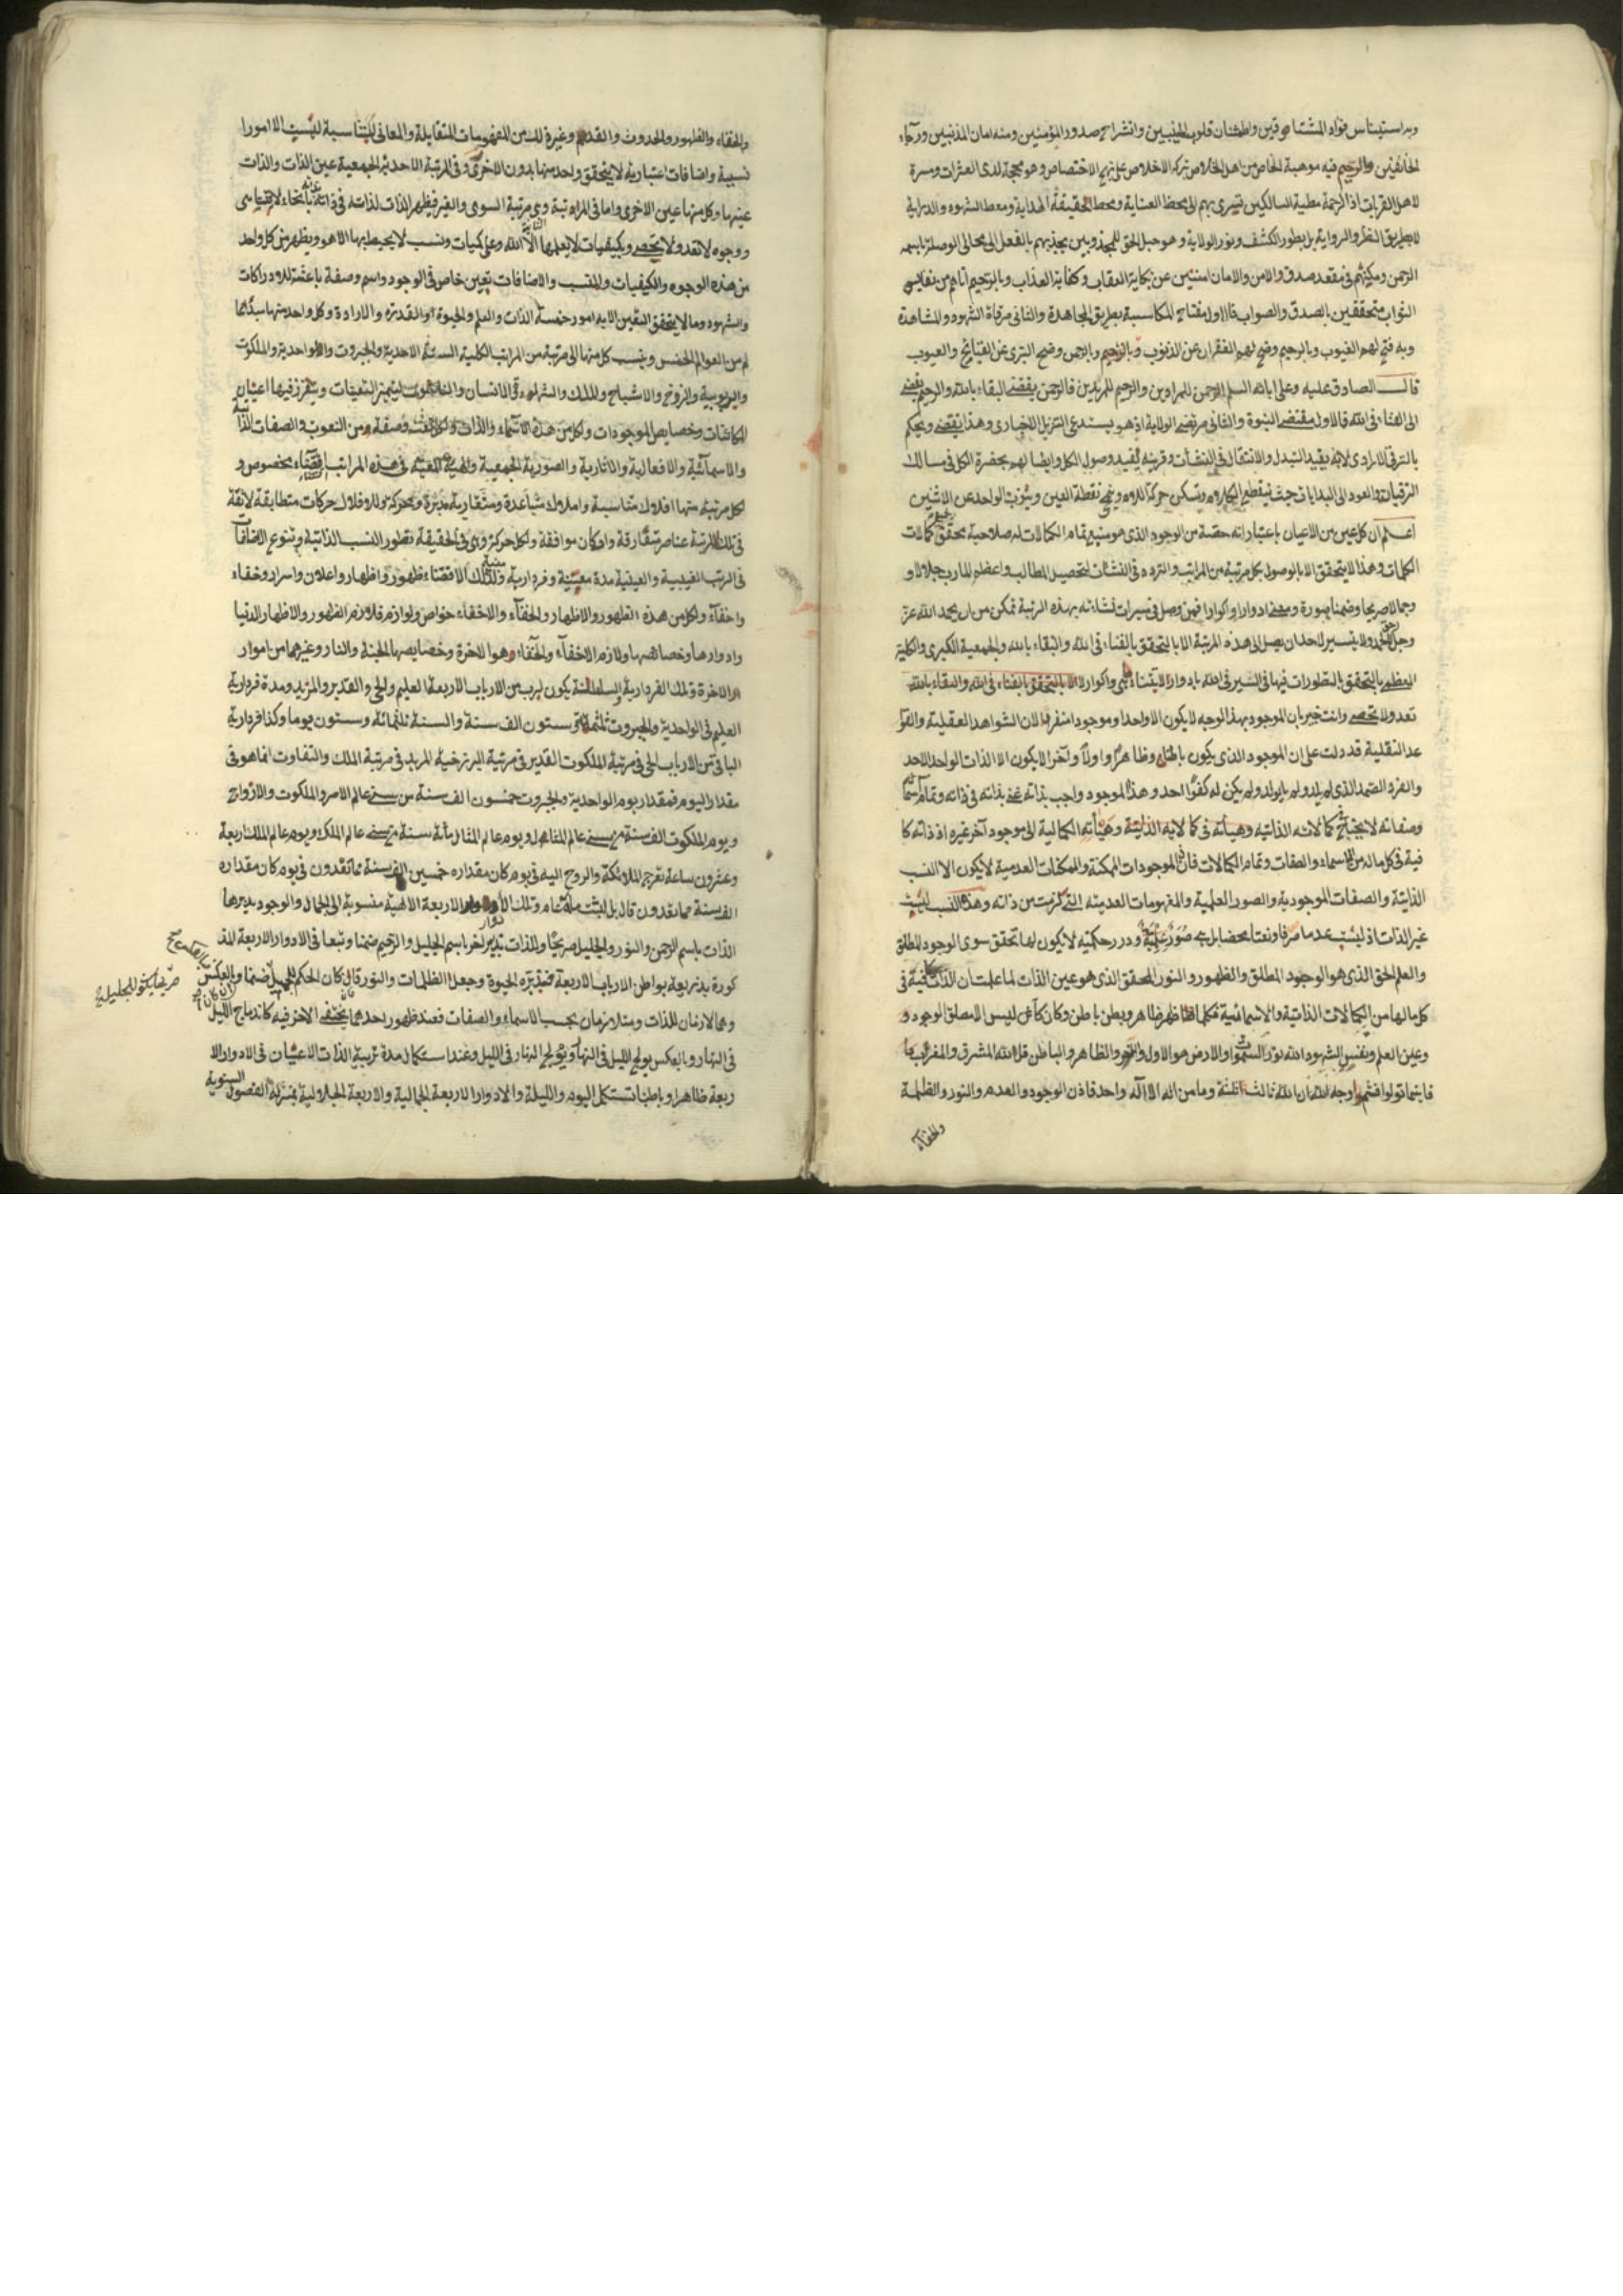 وبه استيناس فؤاد المشتاقين واطمئنان قلوب المحبين وانشراح صدور المؤمنين ومنه امان المذنبين ورجاء
الخائفين والرحيم فيه موهبة الخاص من اهل الخلاص تركه الاخلاص على نهج الاختصاص وهو محجة لدى العثرات ومسرة
لاهل القربات اذ الرحمة مطية السالكين تسرى بهم الى محط العناية ومحط الحقيقة الهداية ومعط الشهود والدراية
لا بطريق النظر والرواية بل بطور الكشف ونور الولاية وهو حبل الحق للمجذوبين يجذبهم بالفعل الى الوصلة باسمه
الرحمن ومكنهم فى مقعد صدق والامن والامان امنين عن نكاية العقاب وكفاية العذاب وبالرحيم اتاهم من نفايس
الثواب متحققين بالصدق والصواب فالاول مفتاح المكاسبة بطريق المجاهدة والثانى مرقاة الشهود والمشاهدة
وبه فتح لهم الغيوب وبالرحيم وضح لهم الغفران عن الذنوب وبالرحيم وبالرحمن وضح التبرى عن القبايح والعيوب
قال الصادق عليه وعلى ابائه السلم الرحمن للمرادين والرحيم للمريدين فالرحمن يقتضى البقاء بالله والرحيم يقضى
الى الفناء فى الله فالاول مقتضى النبوة والثانى مرتضى الولاية اذ هو يستدعى التنزيل الاخبارى وهذا يقتضى ويحكم
بالترقى الارادى لانه يفيد التبدل والانتقال فى النشأت وقرينه يفيد وصول الكل وايضا لهم بحضرة الكل فى مسالك
الترقيات والعود الى البدايات حيث ينقطع الكلام ويسكن حركة اللام ونمحى نقطة العين ويثوب الواحد عن الاثنين
اعلم ان كل عين من الاعيان باعتبار انه حصة من الوجود الذى هو منبع تمام الكمالات له صلاحية تحقق جميع كمالات
الكلمات وهذا لا يتحقق الا بالوصول بكل مرتبة من المراتب والتردد فى النشئات لتحصيل المطالب واعظم المارب جلالا و
وجمالا صريحا وضمنا صورة ومعنى ادوارا واكوارا فمن وصل فى سيرات نشاءته بهذه الرتبة تمكن من ان يحمد الله عز
وجل حق الحمد ولا يتيسر لاحد ان يصل الى هذه المرتبة الا بالتحقق بالفناء فى الله والبقاء بالله والجمعية الكبرى والكلية
العظمى بالتحقق بالتطورات فيها فى السير فى الله بادوار لا يتناهى واكوار لا الا بالتحقق بالفناء فى الله والبقاء بالله
تعد ولا تحصى وانت خبير بان الموجود بهذا الوجه لا يكون الا واحدا وموجودا منفردا لان الشواهد العقلية والقوا
عد النقلية قد دلت على ان الموجود الذى يكون باطنا وظاهرا واولا وآخرا لا يكون الا الذات الواحد الاحد
والفرد الصمد الذى لم يلد ولم يولد ولم يكن له كفوا احد وهذا الموجود واجب بذاته غنى بذاته فى ذاته وتمام اسمائه
وصفاته لا يحتاج فى كمالاته الذاتيه وهيأته فى كمالاته الذاتية وهيأته الكمالية الى موجود آخر غيره اذ ذاته كا
فية فى كل ماله من الاسماء والصفات وتمام الكمالات فان الموجودات الممكنة والممكنات العدمية لا يكون الا النسب
الذاتية والصفات الموجودية والصور العلمية والمفهومات العدميته التى كثرت من ذاته وهذه النسب ليست
غير الذات اذ ليست عدما صرفا ونعتا محضا بل هى صور علمية ودرر حكميه لا يكون لها تحقق سوى الوجود المطلق
والعلم الحق الذى هو الوجود المطلق والظهور والنور المحقق الذى هو عين الذات لما علمت ان الذات كافية فى
كل مالها من الكمالات الذاتية والاسمائية فكلما ظهر ظاهر وبطن باطن وكان كائن ليس الا مطلق الوجود و
وعين العلم ونفس الشهود الله نور السموات والارض هو الاول والاخر والظاهر والباطن قل لله المشرق والمغرب
فاينما تولوا فثم وجه الله ان الله ثالث ثلثة وما من اله الا اله واحد فاذن الوجود والعدم والنور والظلمة
والخفاء
والخفاء والظهور والحدوث والقدم وغير ذلك من المفهومات المتقابلة والمعانى المتناسبة ليست الا امورا
نسبية واضافات اعتبارية لا يتحقق واحد منها بدون الاخرى وفى المرتبة الاحدية الجمعية عين الذات والذات
عينها وكل منها عين الاخرى واما فى المراتبة وى مرتبة السوى والغير فيظهر الذات لذاته فى ذاته بانحاء لا يتناهى
ووجوه لا تعد ولا تحصى وبكيفيات لا يعلمها الا الله وعلى كميات ونسب لا يحيط بها الا هو ويظهر من كل واحد
من هذه الوجوه والكيفيات والنسب والاضافات تعين خاص فى الوجود واسم وصفة باعثة للادراكات
والشهود وما لا يتحقق التعين الا به امور خمسة الذات والعلم والحيوة والقدرة والارادة وكل واحد منها مبدأ لعا
لم من العوالم الخمس وينسب كل منها الى مرتبة من المراتب الكلية الستة الاحدية والجبروت والواحدية والملكوت
والربوبية والروح والاشباح والملك والشهادة والانسان والناسوت ليتميز التعينات ويتقرر فيها اعيان
الكائنات وخصايص الموجودات ولكل من هذه الاسماء والذات ولكل نعت وصفة ومن النعوت والصفات الذاتية
والاسمائية والافعالية والاثارية والصورية الجمعية والهيئة المعية فى هذه المراتب اقتضاء مخصوص و
لكل مرتبة منها افلاك متناسبة واملاك متباعدة ومتقاربة مدبرة ومحركة وللافلاك حركات متطابقة لائقة
فى تلك المرتبة عناصر متفارقة واركان موافقة ولكل حركة دور فى الحقيقة تطور النسب الذاتية وتنوع الاضافات
فى الرتب الغيبية والعينية مدة معينة وفردارية مبينة ولذلك الاقتضاء ظهور واظهار واعلان واسرار وخفاء
واخفاء ولكل من هذه الظهور والاظهار والخفاء والاخفاء خواص ولوازم فلازم الظهور والاظهار الدنيا
وادوارها وخصائصها ولازم الاخفاء والخفاء وهو الاخرة وخصايصها الجنة والنار وغيرهما من اموار
الاخرة وتلك الفردارية والسلطنة يكون لرب من الارباب الاربعة العليم والحى والقدير والمريد ومدة فردارية
العليم فى الواحدية والجبروت ثلثمائة وستون الف سنة والسنة ثلثمائة وستون يوما وكذا فردارية
الباقى من الارباب الحى فى مرتبة الملكوت القدير فى مرتبة البرزخية المريد فى مرتبة الملك والتفاوت انما هو فى
مقدار اليوم فمقدار يوم الواحدية والجبروت خمسون الف سنة من سنى عالم الامر والملكوت والارواح
ويوم الملكوت الف سنة من سنى عالم المثال ويوم عالم المثال مائة سنة من سنى عالم الملك ويوم عالم الملك اربعة
وعشرون ساعة تعرج الملائكة والروح اليه فى يوم كان مقداره خمسين الف سنة مما تعدون فى يوم كان مقداره
الف سنة مما تعدون قال بل لبثت مائة عام وتلك الادوار الاربعة الالهية منسوبة الى الجمال والوجود يديرها
الذات باسم الرحمن والنور والجليل صريحا وللذات تدبير اخر باسم الجليل والرحيم ضمنا وتبعا فى الادوار الاربعة المذ
كورة بذريعة بواطن الارباب الاربعة فتدبره الحيوة وجعل الظلمات والنور فان كان الحكم للجميل ضمنا وبالعكس
وهما لازمان للذات ومتلازمان بحسب الاسماء والصفات فعند ظهور احدهما يختفى الاخر فيه كاندماج الليل
فى النهار وبالعكس يولج الليل فى النهار ويولج النهار فى الليل وعند استكمال مدة تربية الذات الاعيان فى الادوار الا
ربعة ظاهرا وباطنا تستكمل اليوم والليلة والادوار الاربعة الجمالية والاربعة الجلالية بمنزلة الفصول السنوية